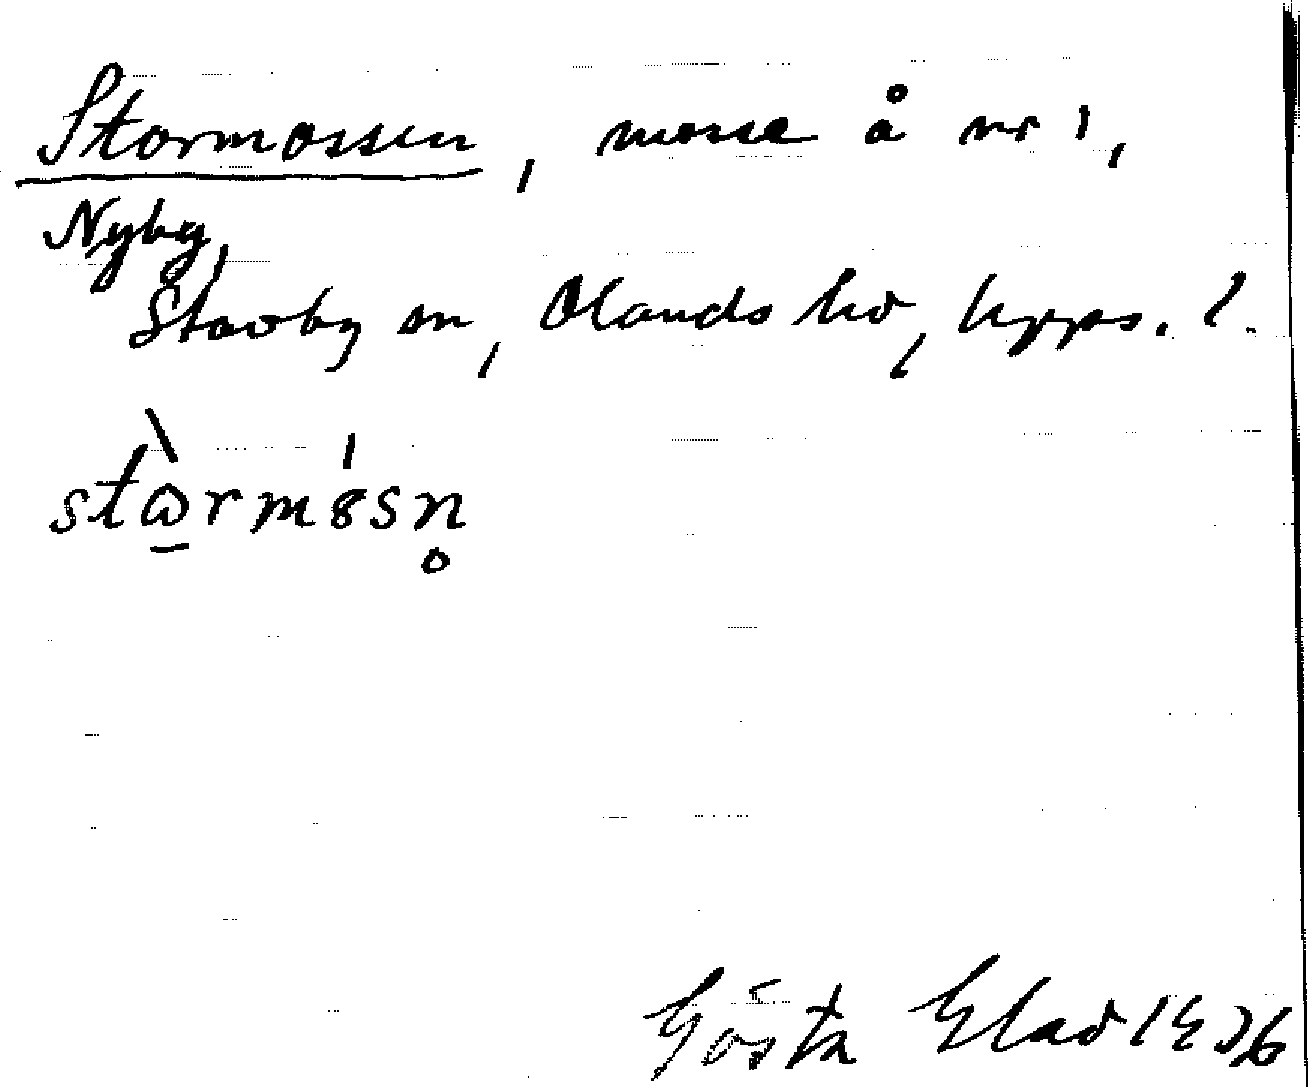 Stormossen, mosse å nr 1,
Nyby,
Stavby sn, Olands hd, Upps. l.
stὼ̱rmȣ́sn̥
Gösta Elad 1936